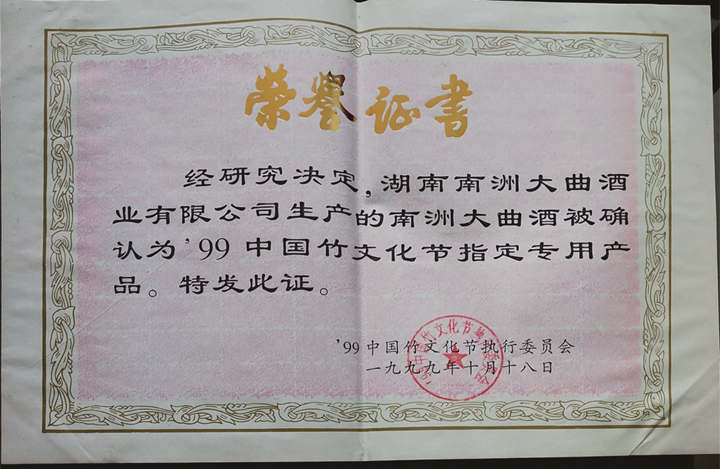 荣誉证书
经研究决定,湖南南洲大曲酒
业有限公司生产的南洲大曲酒被确
认为'99中国竹文化节指定专用产
品。特发此证。
'99中国竹文化节执行委员会
一九九九年十月十八日